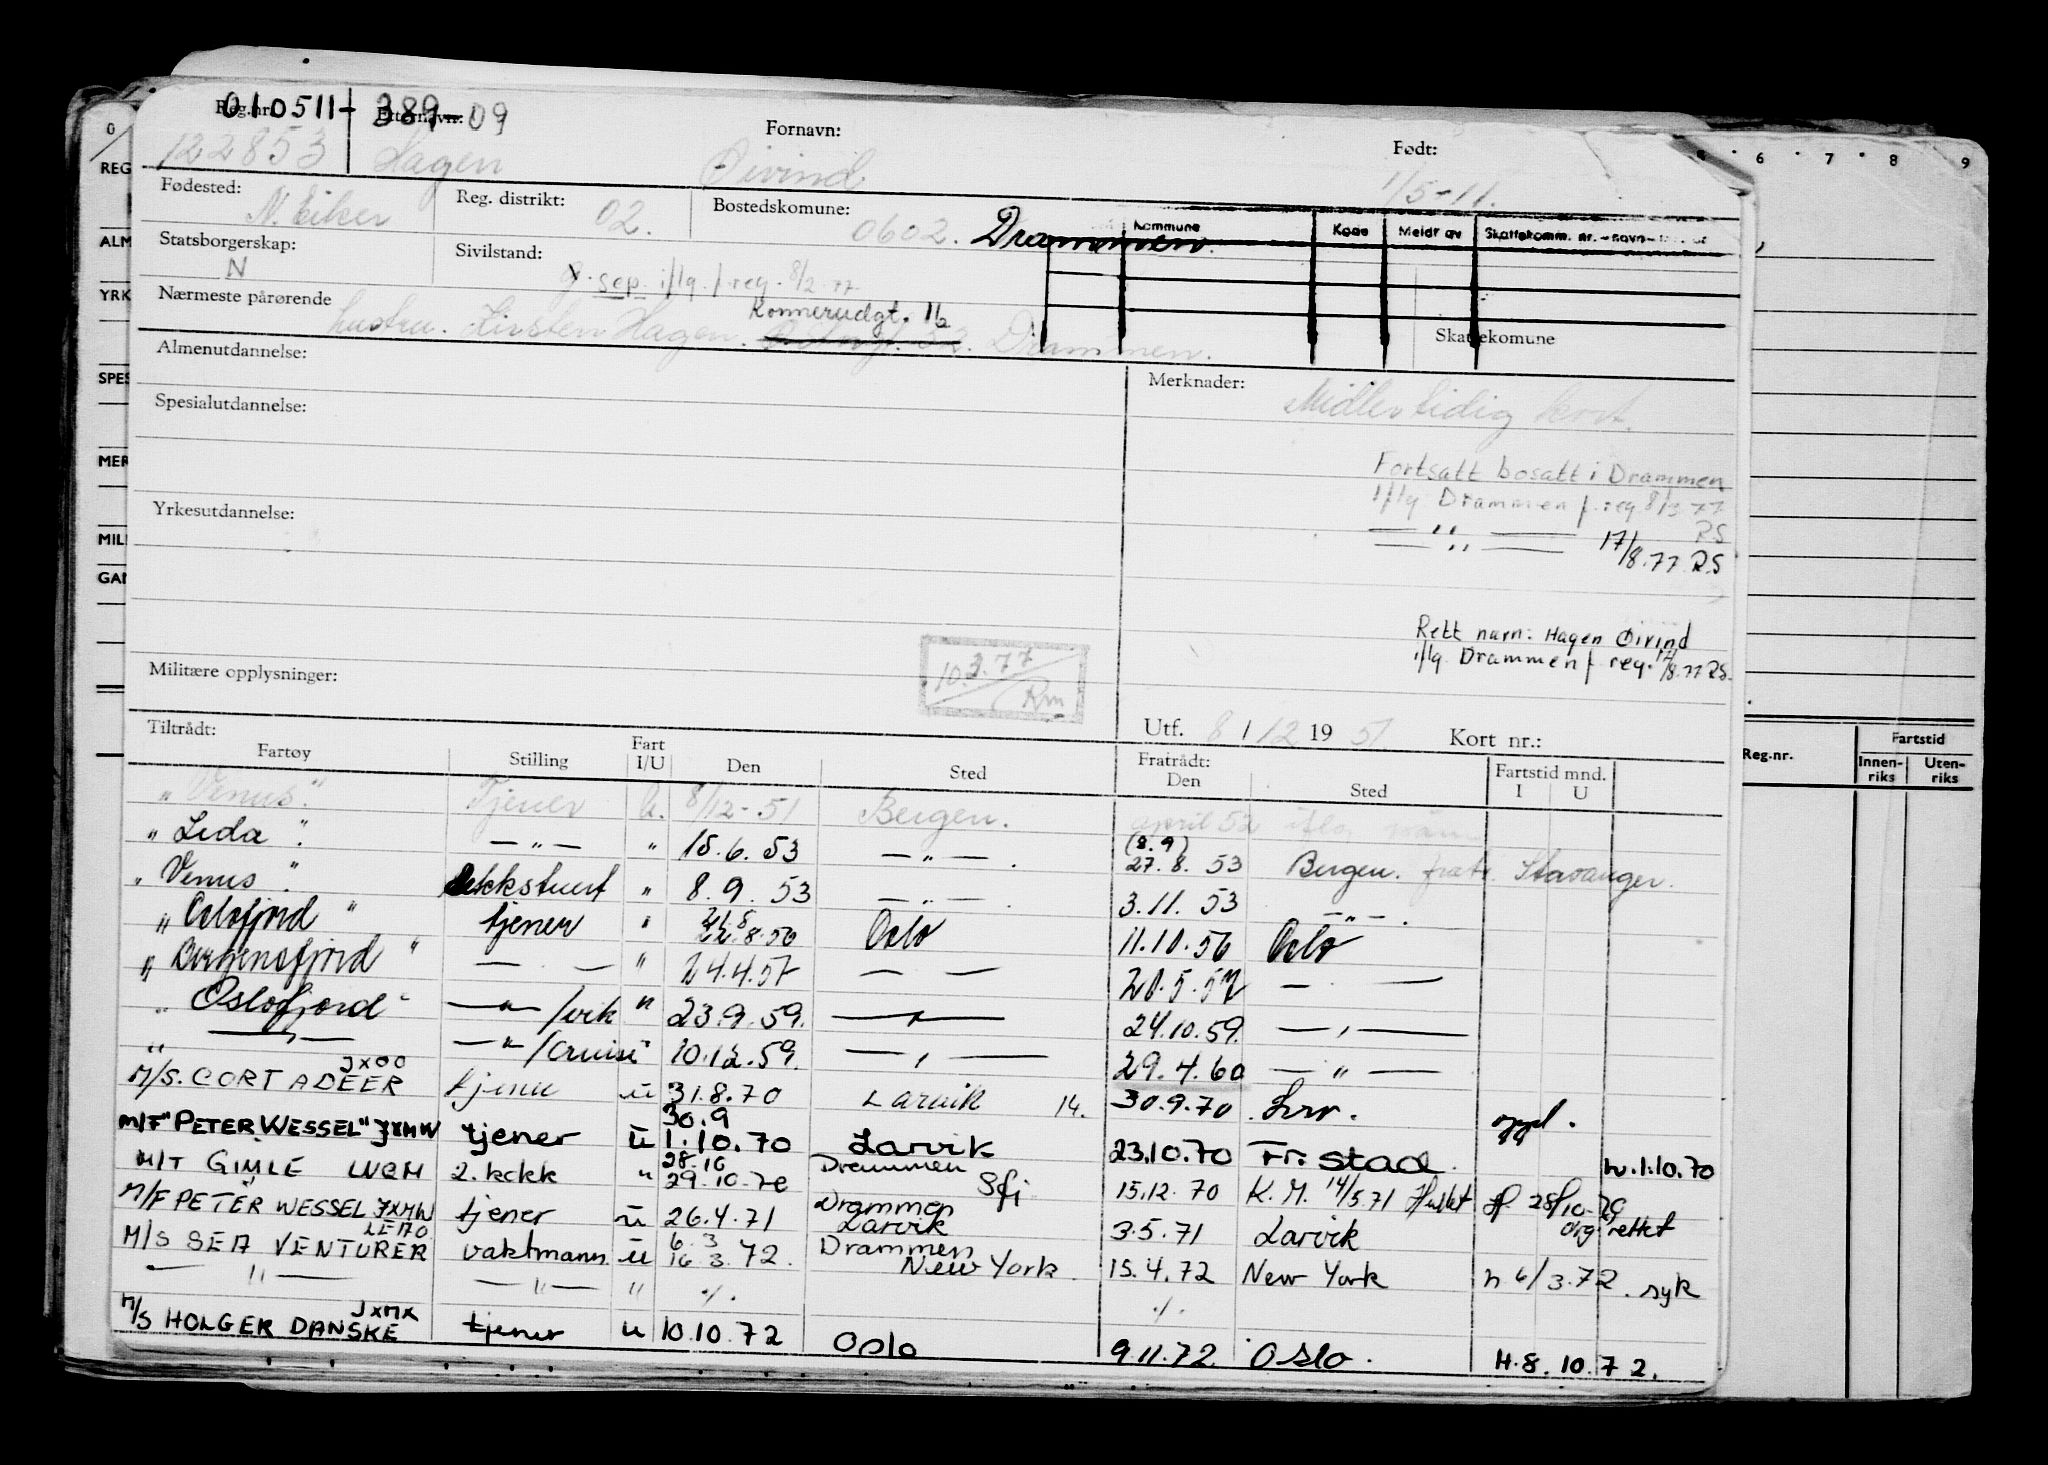 010511-38909
Reg.nr. Etternavn: Fornavn: Født:
122853 Hagen Øivind 1/5-11.
Fødested: N. Eiker Reg. distrikt: 02. Bostedskomune: 0602. Drammen.
Kommune Kode Meldt av Skattekomm. nr. - navn
Statsborgerskap: N Sivilstand: g. sep. iflg. f.reg. 8/2.77
Nærmeste pårørende hustru. Kirsten Hagen. Konnerudgt. 16 Drammen.
Skattekomune
Almenutdannelse:
Merknader: Midlertidig kort.
Spesialutdannelse:
Fortsatt bosatt i Drammen
iflg Drammen f.reg 8/3 77
RS
— " — 17/8.77 RS
Yrkesutdannelse:
Rett navn: Hagen Øivind
iflg. Drammen f. reg. 17/8.77 RS.
10.3.77 Rm
Militære opplysninger:
Utf. 8/12 1951 Kort nr.:
Tiltrådt: Fratrådt:
Fartøy Stilling Fart I/U Den Sted Den Sted Fartstid mnd. I U
"Venus." Tjener U. 8/12-51 Bergen. april 52
"Leda". — " — " 15.6.53 — " — . (8.9) 27.8.53 Bergen. fratr. Stavanger.
"Venus". dekkstuert " 8.9.53 — " — . 3.11.53 — " — .
"Oslofjord" tjener " 22.8.56 Oslo 11.10.56 Oslo
"Bergensfjord" — . — " 24.4.57 — — 20.5.57 — . —
"Oslofjord" — " — /vik " 23.9.59. — " — 24.10.59. — " —
" — " — — " — /Cruise " 10.12.59. — " — 29.4.60 — " —
M/S. CORT ADEER JXOO tjener u 31.8.70 Larvik 14. 30.9.70 Larv. oppl.
M/F "PETER WESSEL" JXMW tjener u 30.9 1.10.70 Larvik 23.10.70 Fr.stad h.1.10.70
M/T GIMLE LNQM 2. kokk " 28.10 29.10.70 Drammen Sfj 15.12.70 K.M. 14/5.71 Hustet H 28/10-70
M/F PETER WESSEL JXMW tjener u 26.4.71 Drammen Larvik 3.5.71 Larvik org rettet
M/S SEA VENTURER LEI70 vaktmann u 6.3 16.3.72. Drammen New York. 15.4.72 New York h 6/3.72. syk
— " — — " — " ./. ./.
M/S HOLGER DANSKE JXMX tjener u 10.10.72 Oslo 9.11.72 Oslo. H.8.10.72.
0 6 7 8 9
REG
ALM
YRK
SPES
MER
MILI
GAN
Reg.nr. Fartstid
Innen-riks Uten-riks